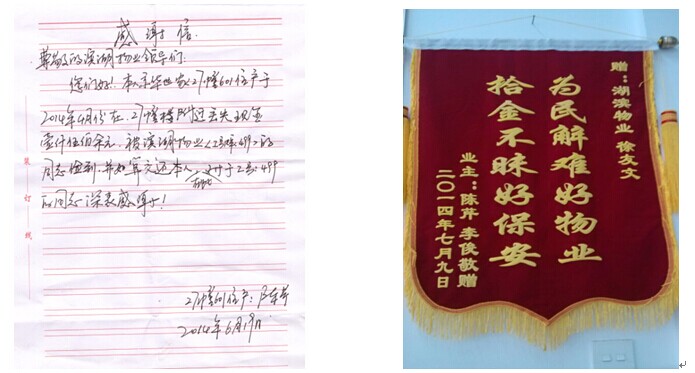 感谢信
尊敬的滨湖物业领导们:
您们好!本人系 27幢601住户于
2014年4月份在27幢楼附近丢失现金
壹仟伍佰余元,被滨湖物业
同志捡到,并如数无还本人,对于
的同志深表感谢!
27幢601住户:
2014年6月19日
装
订
线
赠:湖滨物业 徐友文
为民解难好物业
拾金不昧好保安
业主:陈芹 李俊敬赠
二〇一四年七月九日